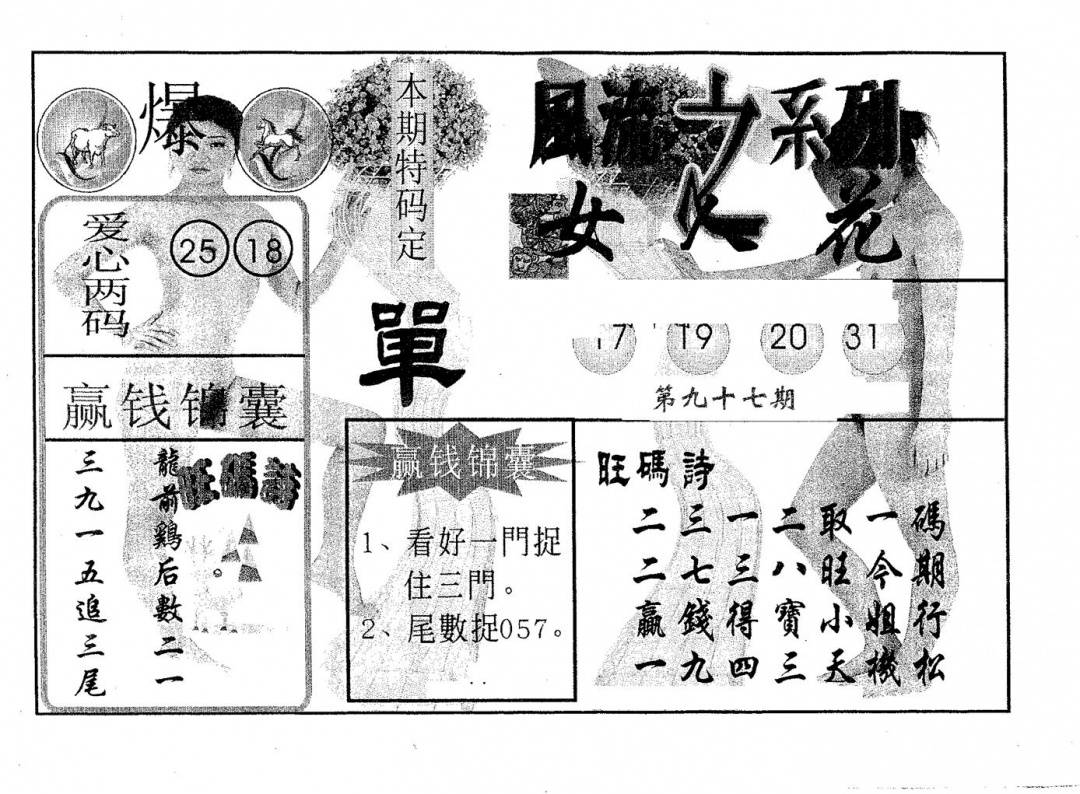 爆
爱心两码
25 18
赢钱锦囊
龍前鷄后數二一
三九一五追三尾
旺碼詩
本期特码定
單
風流之系列
女人花
17 19 20 31
第九十七期
赢钱锦囊
1、看好一門捉
住三門。
2、尾數捉057。
旺碼詩
二三一二取一碼
二七三八旺今期
贏錢得寶小姐行
一九四三天機松